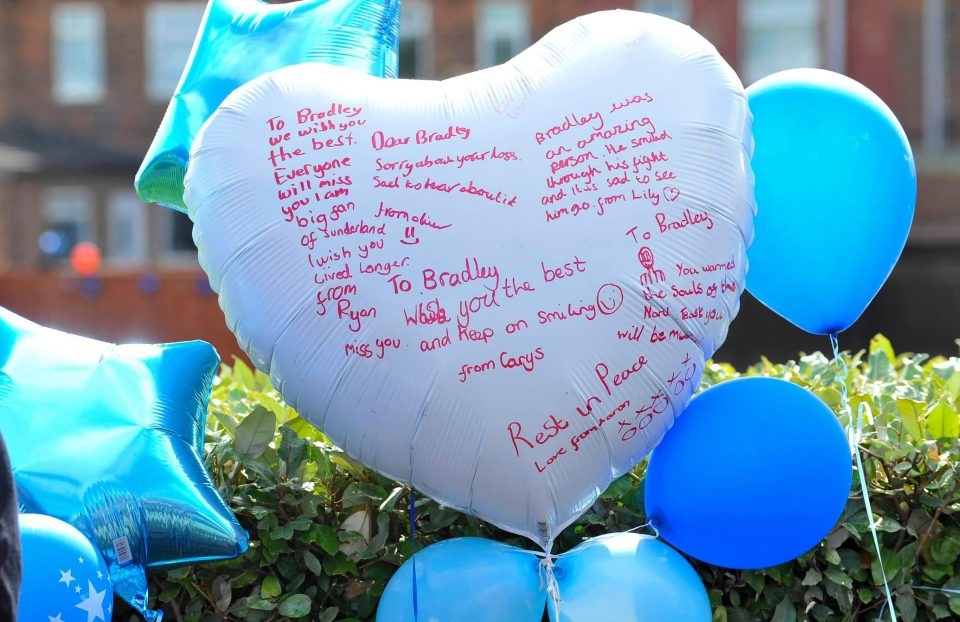 To Bradley
we wish you
the best.
Everyone
will miss
you I am
big fan
of sunderland
I wish you
Lived Longer.
from
Ryan
Dear Bradley
Sorry about your loss.
Sad to hear about it
from
Bradley was
an amazing
person. He smiled
through his fight
and it is sad to see
him go. from Lily
To Bradley
wish you the best
and Keep on smiling
from Carys
Miss you.
To Bradley
You warmed
the souls of
Nord East you
will be
Rest in Peace
Love from Aaron